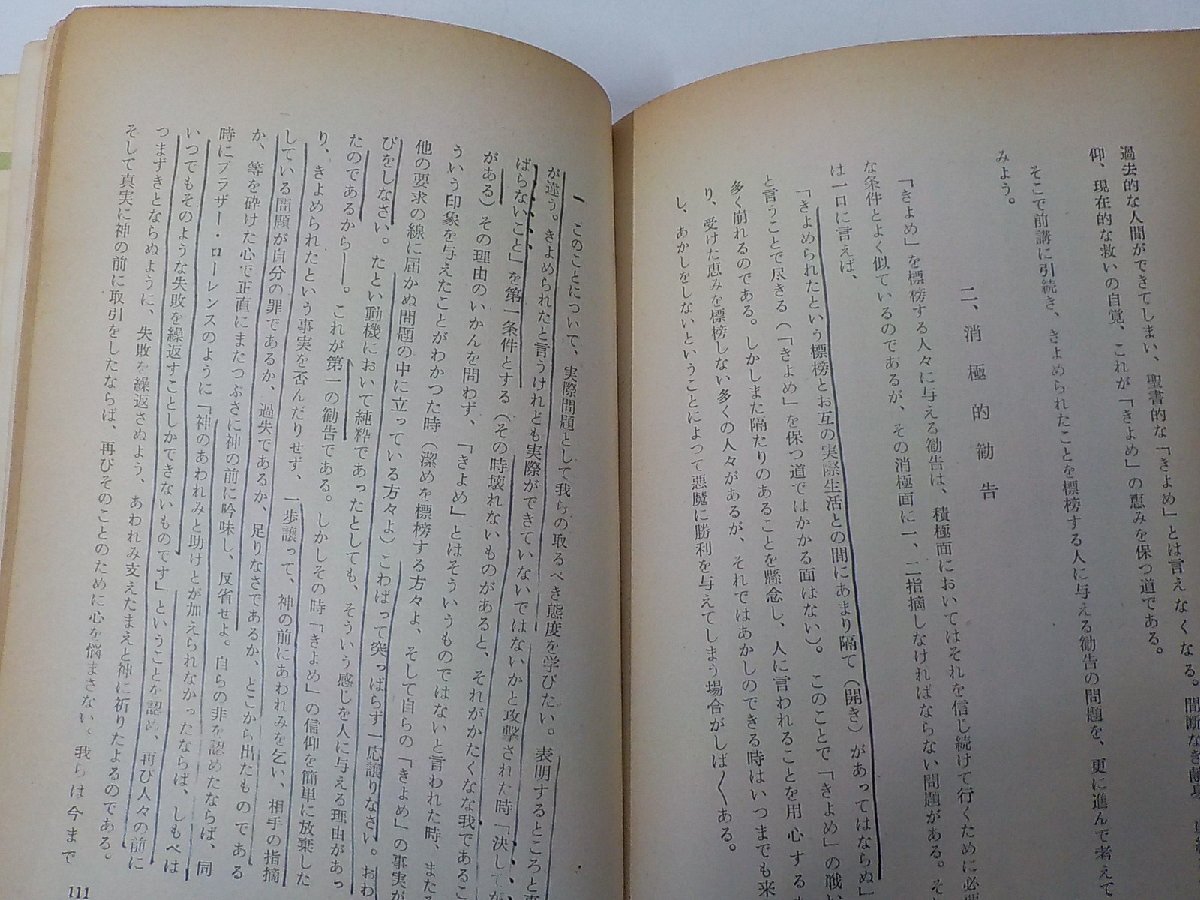 過去的な人間ができてしまい、聖書的な「きよめ」とは言えなくなる。間断なき献身、
仰、現在的な救いの自覚、これが「きよめ」の恵みを保つ道である。
そこで前講に引続き、きよめられたことを標榜する人に与える勧告の問題を、更に進んで考えて
みよう。
二、消極的勧告
「きよめ」を標榜する人々に与える勧告は、積極面においてはそれを信じ続けて行くために必要
な条件とよく似ているのであるが、その消極面に一、二指摘しなければならない問題がある。そ
は一口に言えば、
「きよめられたという標榜とお互の実際生活との間にあまり隔て（開き）があってはならぬ」
と言うことで尽きる（「きよめ」を保つ道ではかかる面はない）。このことで「きよめ」の戦い
多く崩れるのである。しかしまた隔たりのあることを懸念し、人に言われることを用心する
り、受けた恵みを標榜しない多くの人々があるが、それではあかしのできる時はいつまでも来
し、あかしをしないということによって悪魔に勝利を与えてしまう場合がしば〱ある。
一 このことについて、実際問題として我らの取るべき態度を学びたい。表明するところと実
が違う。きよめられたと言うけれども実際ができていないではないかと攻撃された時「決してが
ばらないこと」を第一条件とする（その時壊れないものがあると、それがかたくなな我であるこ
がある）その理由のいかんを問わず、「きよめ」とはそういうものではないと言われた時、また
ういう印象を与えたことがわかった時（潔めを標榜する方々よ、そして自らの「きよめ」の事実が
他の要求の線に届かぬ問題の中に立っている方々よ）こわばって突っぱらず一応譲りなさい。おわ
びをしなさい。たとい動機において純粋であったとしても、そういう感じを人に与える理由があっ
たのであるから――。これが第一の勧告である。しかしその時「きよめ」の信仰を簡単に放棄した
り、きよめられたという事実を否んだりせず、一歩譲って、神の前にあわれみを乞い、相手の指摘
している問題が自分の罪であるか、過失であるか、足りなさであるか、どこから出たものである
か、等を砕けた心で正直にまたつぶさに神の前に吟味し、反省せよ。自らの非を認めたならば、同
時にブラザー・ローレンスのように「神のあわれみと助けとが加えられなかったならば、しもべは
いつでもそのような失敗を繰返すことしかできないものです」ということを認め、再び人々の前に
つまずきとならぬように、失敗を繰返さぬよう、あわれみ支えたまえと神に祈りたよるのである。
そして真実に神の前に取引をしたならば、再びそのことのために心を悩まさない。我らは今まで
111